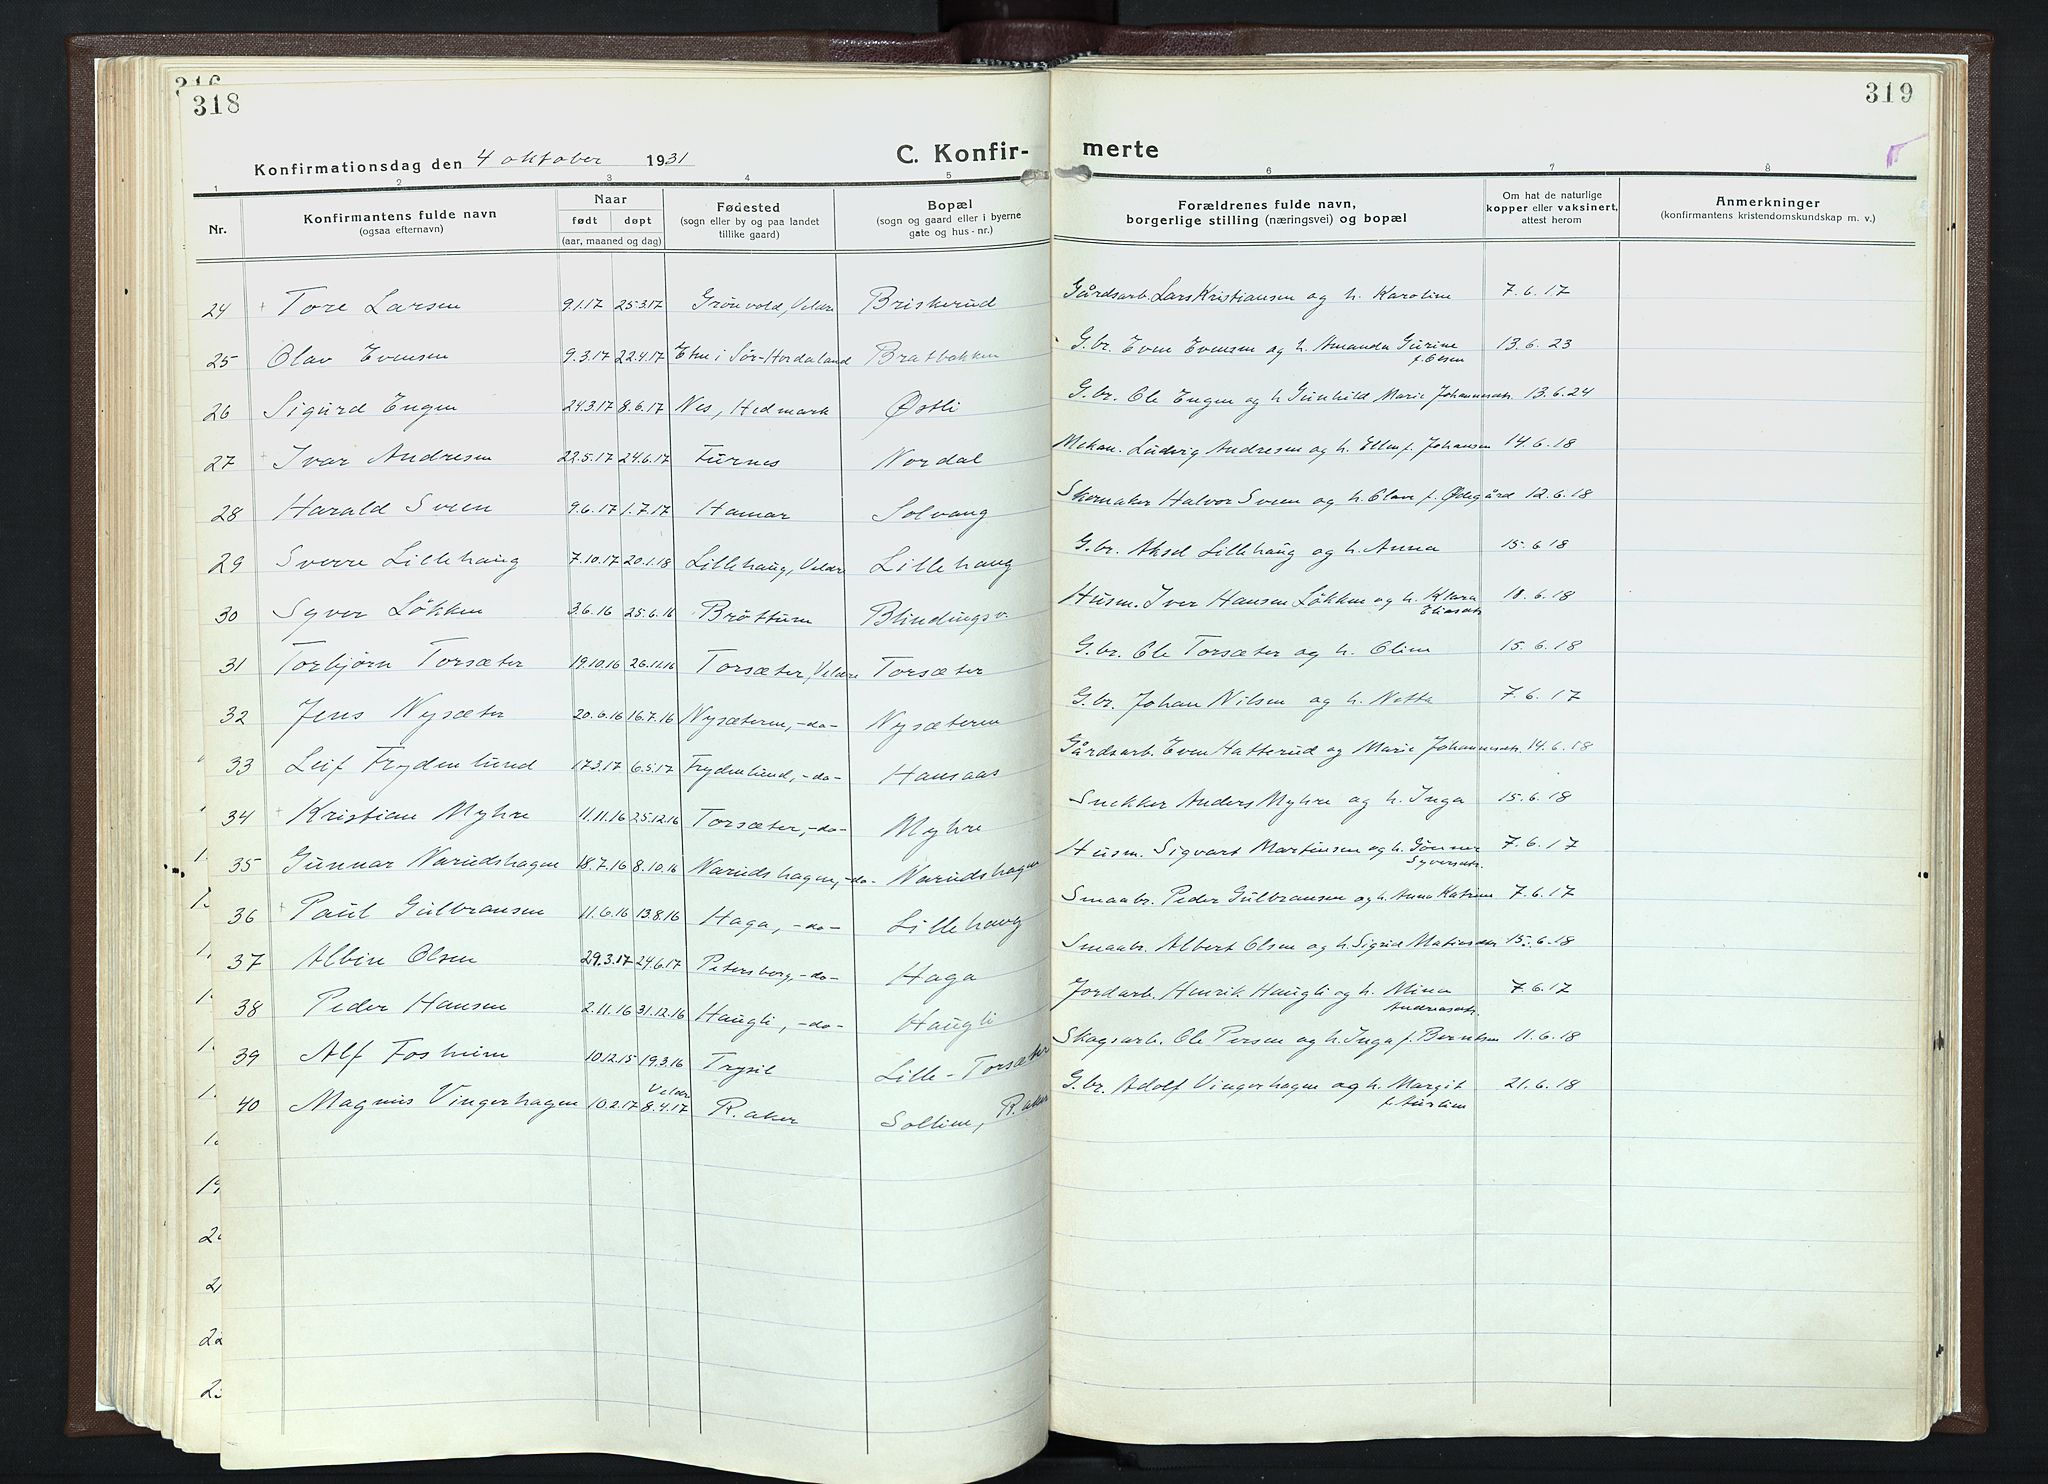 316
318
319
Konfirmationsdag den 4 oktober 1931
C. Konfir-
merte
1 2 3 4 5 6 7 8
Nr.
Konfirmantens fulde navn
(ogsaa efternavn)
Naar
født døpt
(aar, maaned og dag)
Fødested
(sogn eller by og paa landet
tillike gaard)
Bopæl
(sogn og gaard eller i byerne
gate og hus-nr.)
Forældrenes fulde navn,
borgerlige stilling (næringsvei) og bopæl
Om hat de naturlige
kopper eller vaksinert,
attest herom
Anmerkninger
(konfirmantens kristendomskundskap m. v.)
24 + Tore Larsen 9.1.17 25.3.17 Grönvold, Veldre Briskerud Gårdsarb. Lars Kristiansen og h. Karoline 7.6.17
25 Olav Evensen 9.3.17 22.4.17 Etne i Sør-Hordaland Bratbakken G.br. Even Evensen og h. Amanda Gurine f. Olsen 13.6.23
26 Sigurd Engen 24.3.17 8.6.17 Nes, Hedmark Østli G.br. Ole Engen og h Gunhild Marie Johannesdtr. 13.6.24
27 + Ivar Andresen 22.5.17 24.6.17 Furnes Nordal Mekan. Ludvig Andresen og h. Ellen f. Johansen 14.6.18
28 Harald Sveen 9.6.17 1.7.17 Hamar Solvang Skomaker Halvor Sveen og h. Olave f. Ødegård 12.6.18
29 Sverre Lillehaug 7.10.17 20.1.18 Lillehaug, Veldre Lillehaug G.br. Aksel Lillehaug og h. Anna 15.6.18
30 Syver Løkken 3.6.16 25.6.16 Brøttum Blindingsv. Husm. Iver Hansen Løkken og h. Klara Eliasdtr. 18.6.18
31 Torbjørn Torsæter 19.10.16 26.11.16 Torsæter, Veldre Torsæter G.br. Ole Torsæter og h. Oline 15.6.18
32 Jens Nysæter 20.6.16 16.7.16 Nysæteren, -do- Nysæteren G.br. Johan Nilsen og h. Netta 7.6.17
33 Leif Frydenlund 17.3.17 6.5.17 Frydenlund, -do- Hansaas Gårdsarb. Even Hatterud og Marie Johannesdtr. 14.6.18
34 + Kristian Myhre 11.11.16 25.12.16 Torsæter, -do- Myhre Snekker Anders Myhre og h. Inga 15.6.18
35 Gunnar Narudshagen 18.7.16 8.10.16 Narudshagen, -do- Narudshagen Husm. Sigvart Martinsen og h. Gunnor Syversdtr. 7.6.17
36 + Paul Gulbransen 11.6.16 13.8.16 Haga, -do- Lillehaug Smaabr. Peder Gulbransen og h. Anna Katrine 7.6.17
37 Albin Olsen 29.3.17 24.6.17 Petersberg, -do- Haga Smaabr. Albert Olsen og h. Sigrid Matinsdtr 15.6.18
38 Peder Hansen 2.11.16 31.12.16 Haugli, -do- Haugli Jordarb. Henrik Haugli og h. Mina Andreasdtr. 7.6.17
39 Alf Fosheim 10.12.15 19.3.16 Trysil Lille-Torsæter Skogsarb. Ole Persen og h. Inga f. Berntsen 11.6.18
40 Magnus Vingerhagen 10.2.17 Veldre 8.4.17 R.aker Solliene, R.aker G.br. Adolf Vingerhagen og h. Margit f. Aurlien 21.6.18